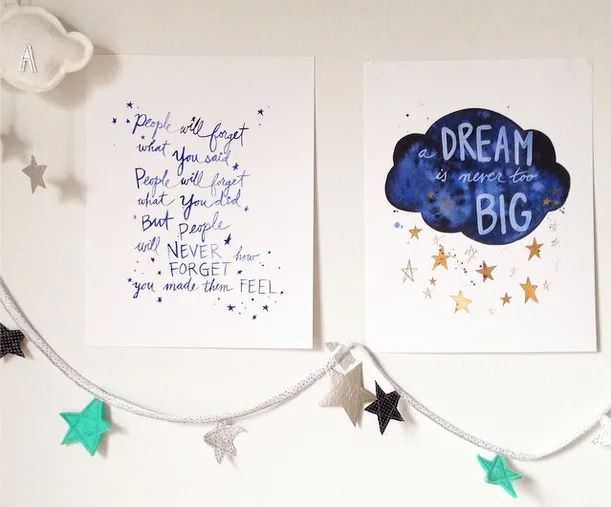 A
People will forget
what you said
People will forget
what you did
But people
will NEVER how
FORGET
you made them FEEL.
a DREAM
is never too
BIG